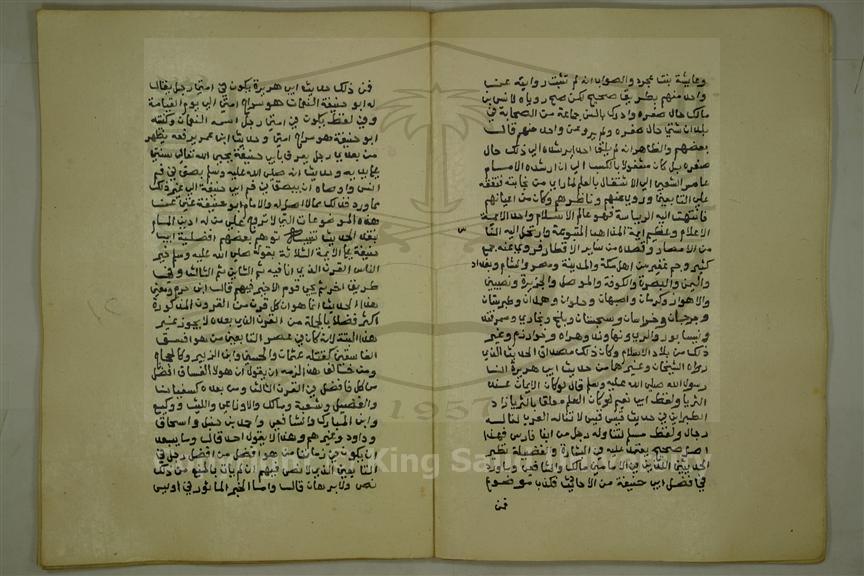 وعايشة بنت عجرد والصواب انه لم تثبت روايته عن
واحد منهم بطريق صحيح لكن صح روياه لانس بن
مالك حال صغره وادرك بالسن جماعة من الصحابة في
بلدان شتى حال صغره ولم يرو عن واحد منهم قال
بعضهم والظاهر انه لم يلق احدا يرشده الى ذلك حال
صغره بل كان مشغولا بالكسب الى ان ارشده الامام
عامر الشعبي الى الاشتغال بالعلم لما راى من نجابته فتفقه
على التابعين وروى عنهم وناظرهم وكان من اعيانهم
فانتهت اليه الرياسة فهو عالم الاسلام واحد الايمة
الاعلام وعظيم ايمة المذاهب المتبوعة وارتحل اليه الناس
من الامصار وقصده من ساير الاقطار فروى عنه جمع
كثير وجم غفير من اهل مكة والمدينة ومصر والشام وبغداد
واليمن والبصرة والكوفة والموصل والجزيرة ونصيبين
والاهواز وكرمان واصبهان وحلوان وهمدان وطبرستان
وجرجان وخراسان وسجستان وبلخ وبخارى وسمرقند
ونيسابور والري ونهاوند وهراه وخوارزم وغير
ذلك من بلاد الاسلام وكان ذلك مصداق الحديث الذي
رواه الشيخان وغيرهما من حديث ابي هريرة ان
رسول الله صلى الله عليه وسلم قال لو كان الايمان عند
الثريا ولفظ ابي نعيم لو كان العلم معلقا بالثريا زاد
الطبراني في حديث قيس لا تناله العرب لناله
رجال ولفظ مسلم لتناوله رجل من ابنا فارس فهذا
اصل صحيح يعتمد عليه في البشارة والفضيلة نظير
الحديثين اللذين في الامامين مالك والشافعي وما ورد
في افضل ابي حنيفة من الاحاديث فكذب موضوع
فمن
فمن ذلك حديث ابي هريرة يكون في امتي رجل يقال
له ابو حنيفة النعمان هو سراج امتي الى يوم القيامة
وفي لفظ يكون في امتي رجل اسمه النعمان وكنيته
ابو حنيفة هو سراج امتي وحديث ابن عمر يرفعه يظهر
من بعدي رجل يعرف بابي حنيفة يحيي الله تعالى سنتي
على يديه وحديث انه صلى الله عليه وسلم بصق في فم
انس واوصاه ان يبصق في فم ابي حنيفة الى غير ذلك
مما ورد فذلك مما لا اصل له والامام ابو حنيفة غني عن
هذه الموضوعات التي لا تروج على من له ادنى المام
بنقد الحديث تنبيه توهم بعضهم افضلية ابي
حنيفة على الايمة الثلاثة بقوله صلى الله عليه وسلم خير
الناس القرن الذي انا فيه ثم الثاني ثم الثالث وفي
طريق اخر ثم يجي قوم لا خير فيهم قال ابن حزم ومعنى
هذا الحديث انما هو ان كل قرن من القرون المذكورة
اكثر فضلا بالجملة من القرن الذي بعده لا يجوز غير
هذا البتة لانه كان في عصر التابعين من هو افسق
الفاسقين كقتلة عثمان والحسين وابن الزبير وكالحجاج
ومن خالف هذا لزمه ان يقول ان هولا الفساق افضل
من كل فاضل في القرن الثالث ومن بعده كسفيان
والفضيل وشعبة ومالك والاوزاعي والليث ووكيع
وابن المبارك والشافعي واحمد بن حنبل واسحاق
وداود وغيرهم وهذا لا يقوله احد قال وما يبعد
ان يكون في زماننا من هو افضل من افضل رجل في
التابعين الذي لا صلى فيهم ان لم يات بالمنع من ذلك
نص ولا برهان قال واما الخبر الماثور في اويس